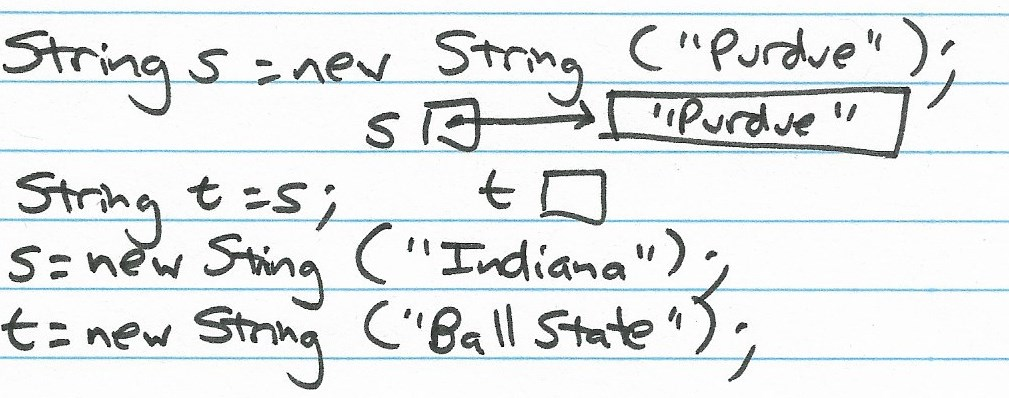 String s = new String ("Purdue");
s "Purdue"
String t = s; t
s = new String ("Indiana");
t = new String ("Ball State");